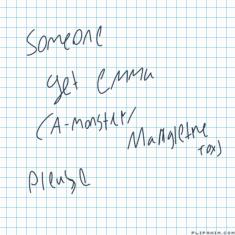 Someone
get Emma
(A-monster/
Manglethe
fox)
please
FLIPANIM.COM